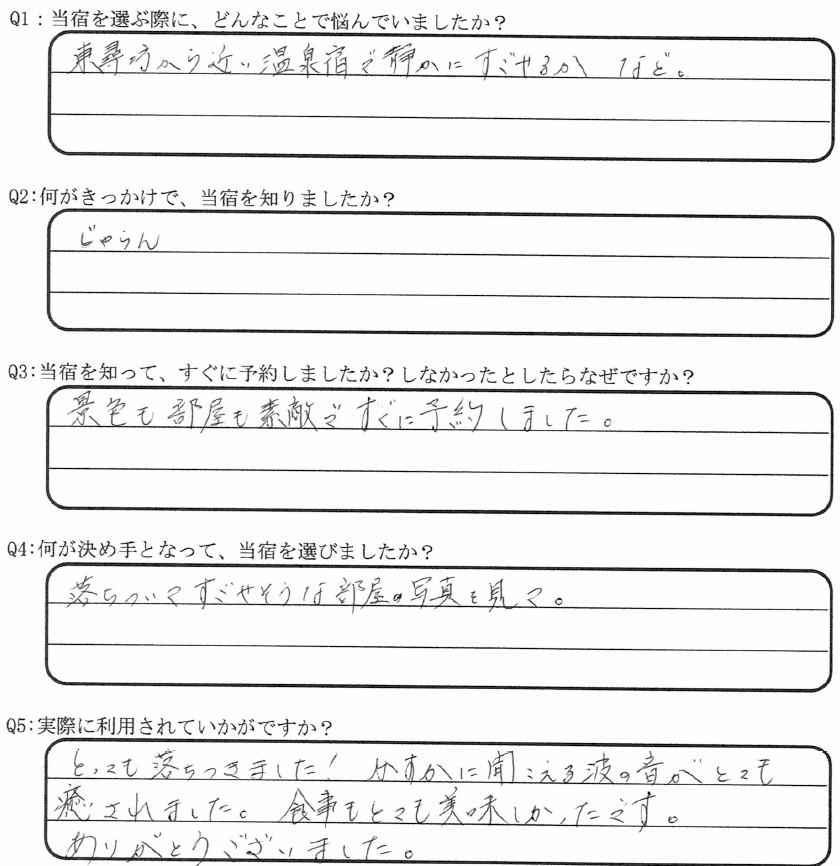 Q1:当宿を選ぶ際に、どんなことで悩んでいましたか?
東尋坊から近い温泉宿で静かにすごせるか など。
Q2:何がきっかけで、当宿を知りましたか?
じゃらん
Q3:当宿を知って、すぐに予約しましたか?しなかったとしたらなぜですか?
景色も部屋も素敵ですぐに予約しました。
Q4:何が決め手となって、当宿を選びましたか?
落ちついてすごせそうな部屋の写真を見て。
Q5:実際に利用されていかがですか?
とっても落ちつきました! かすかに聞こえる波の音がとても
癒されました。 食事もとても美味しかったです。
ありがとうございました。